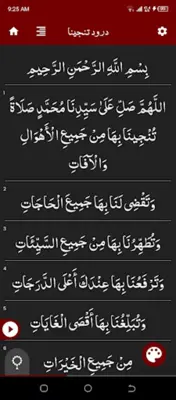 9:25 AM
درود تنجینا
بِسْمِ اللَّهِ الرَّحْمَنِ الرَّحِيمِ
1
اللَّهُمَّ صَلِّ عَلَىٰ سَيِّدِنَا مُحَمَّدٍ صَلَاةً
تُنْجِينَا بِهَا مِنْ جَمِيعِ الْأَهْوَالِ
وَالْآفَاتِ
2
وَتَقْضِى لَنَا بِهَا جَمِيعَ الْحَاجَاتِ
3
وَتُطَهِّرُنَا بِهَا مِنْ جَمِيعِ السَّيِّئَاتِ
4
وَتَرْفَعُنَا بِهَا عِنْدَكَ أَعْلَى الدَّرَجَاتِ
5
وَتُبَلِّغُنَا بِهَا أَقْصَى الْغَايَاتِ
مِنْ جَمِيعِ الْخَيْرَاتِ